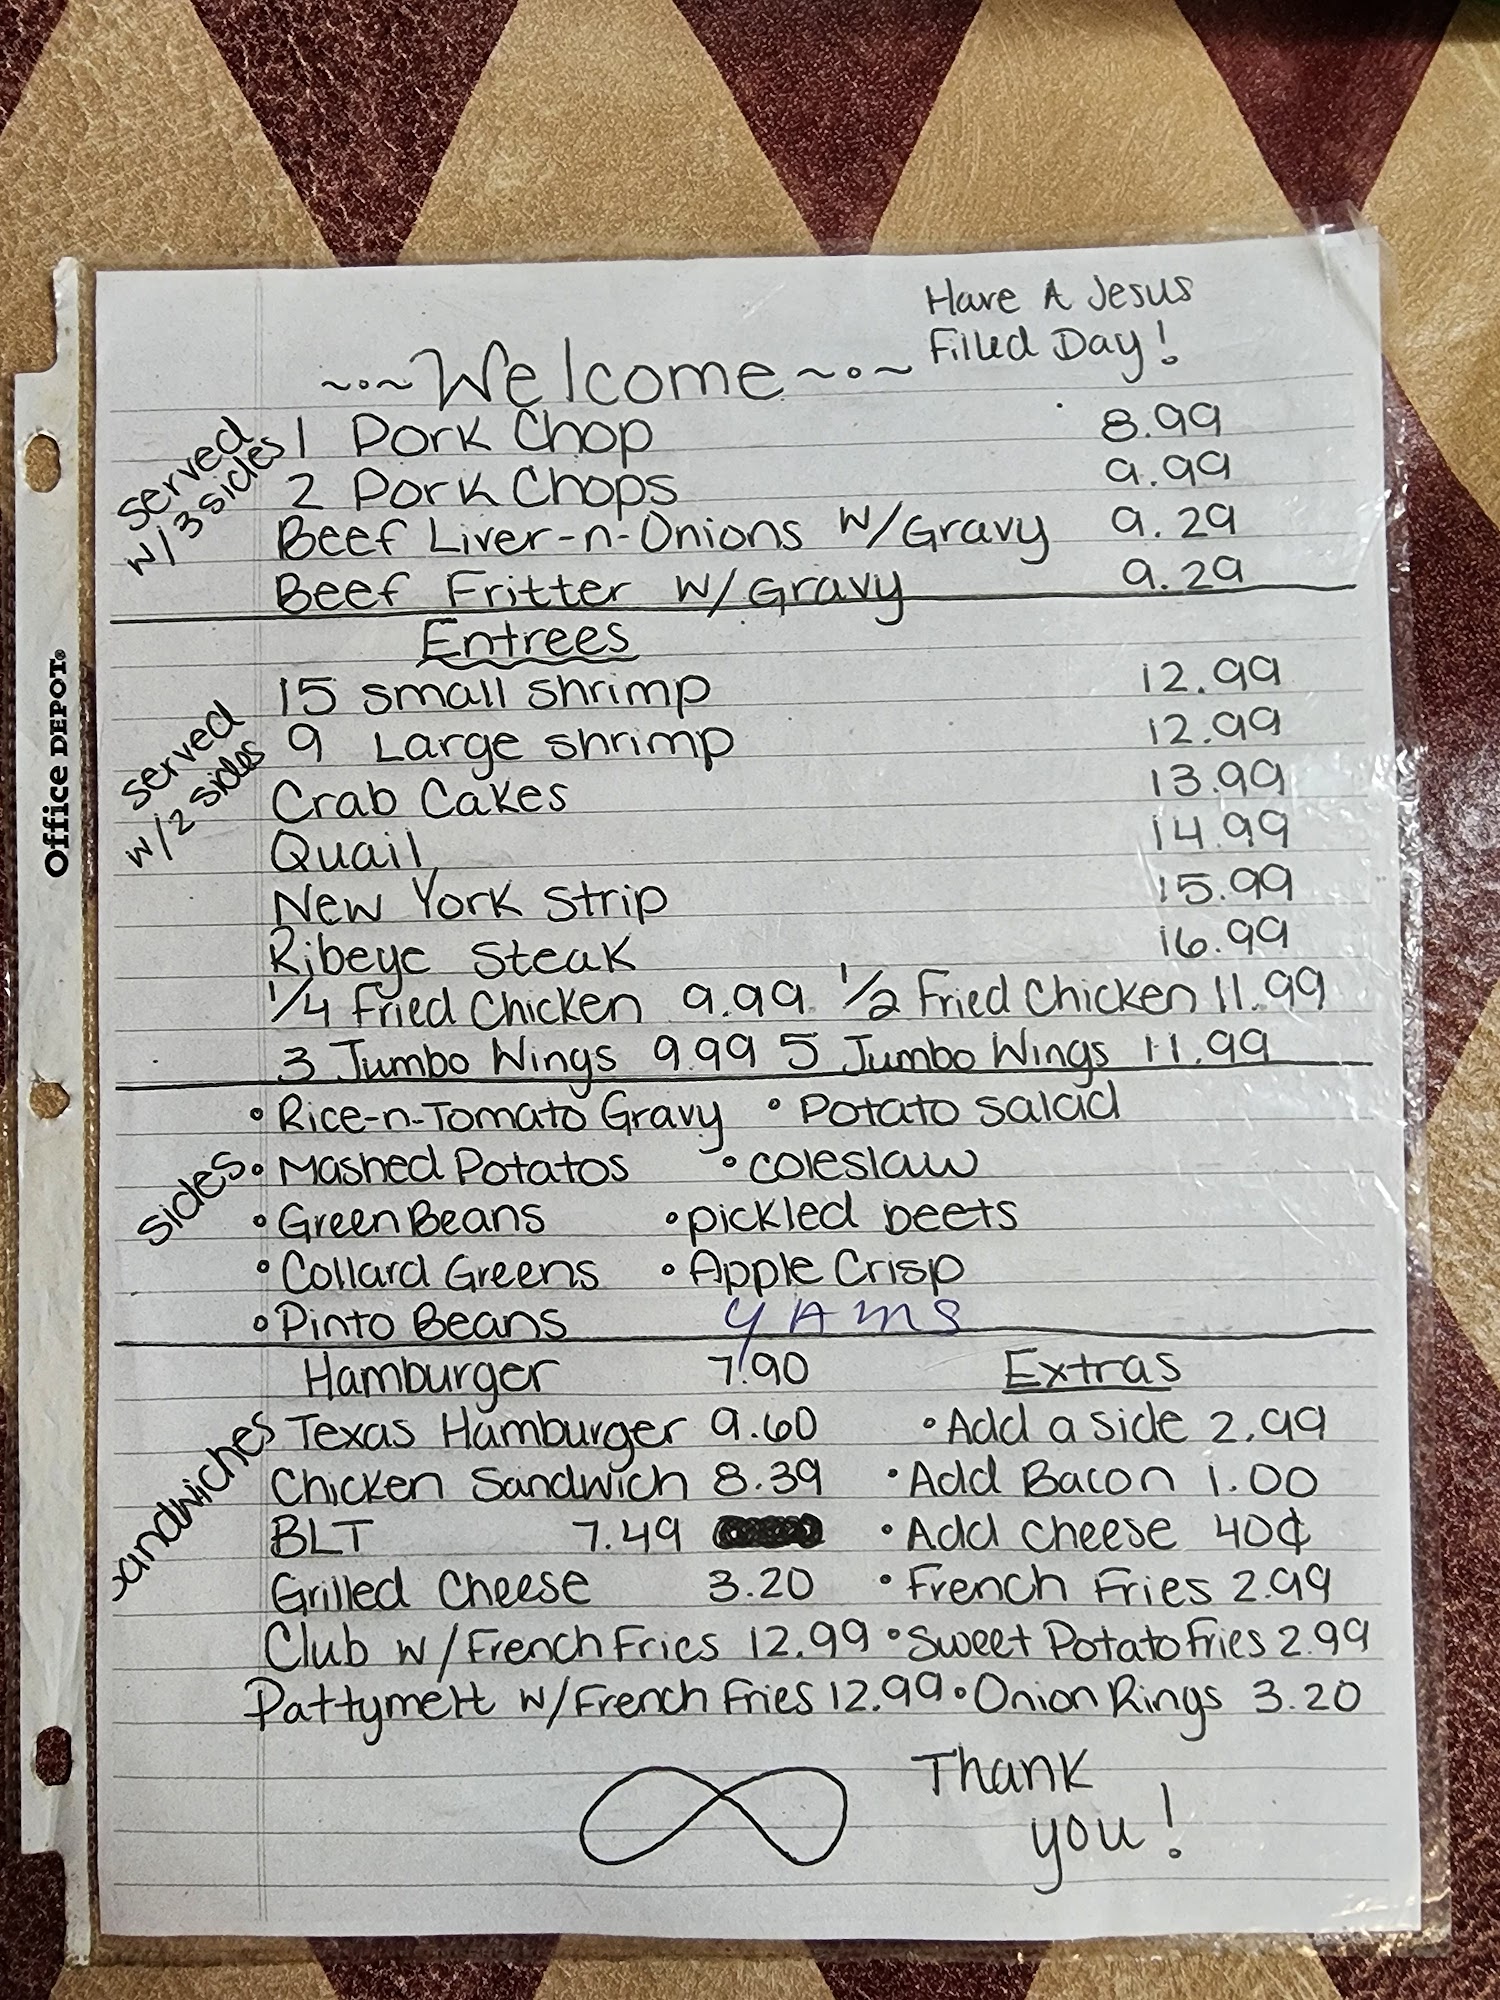 Have A Jesus
Filled Day!
~·~Welcome~·~
served
w/3 sides
1 Pork Chop 8.99
2 Pork Chops 9.99
Beef Liver-n-Onions w/Gravy 9.29
Beef Fritter w/Gravy 9.29
Entrees
served
w/2 sides
15 small shrimp 12.99
9 Large shrimp 12.99
Crab Cakes 13.99
Quail 14.99
New York Strip 15.99
Ribeye Steak 16.99
1/4 Fried Chicken 9.99 1/2 Fried Chicken 11.99
3 Jumbo Wings 9.99 5 Jumbo Wings 11.99
Sides
•Rice-n-Tomato Gravy •Potato Salad
•Mashed Potatos •coleslaw
•Green Beans •pickled beets
•Collard Greens •Apple Crisp
•Pinto Beans YAMS
Sandwiches
Hamburger 7.90 Extras
Texas Hamburger 9.60 •Add a side 2.99
Chicken Sandwich 8.39 •Add Bacon 1.00
BLT 7.49 •Add cheese 40¢
Grilled Cheese 3.20 •French Fries 2.99
Club w/French Fries 12.99 •Sweet Potato Fries 2.99
Pattymelt w/French Fries 12.99 •Onion Rings 3.20
Thank
you!
Office DEPOT®